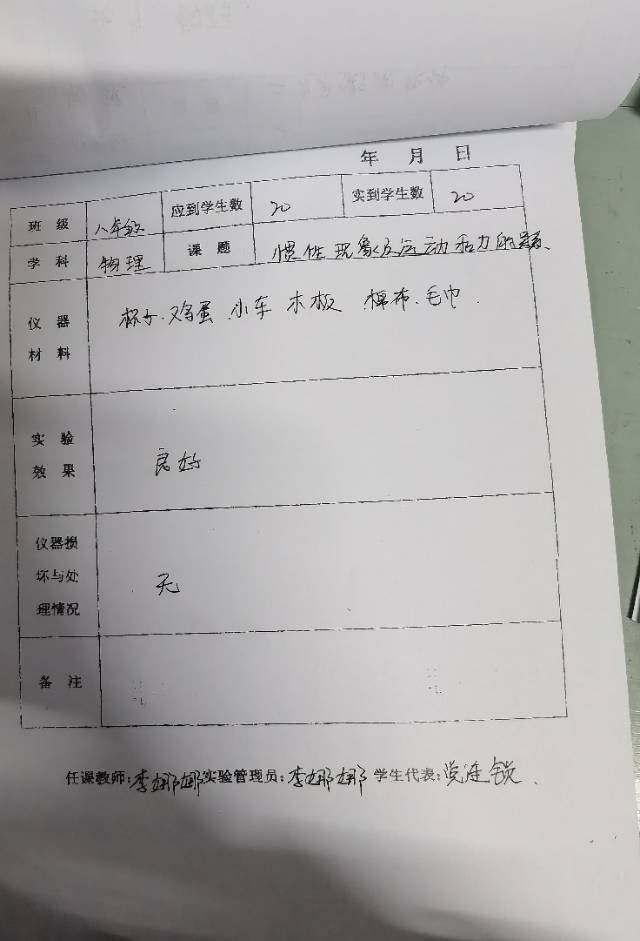 年 月 日
班 级 八年级 应到学生数 20 实到学生数 20
学 科 物理 课 题 惯性现象及运动和力的
仪 器
材 料
杯子、鸡蛋 小车 木板 棉布、毛巾
实 验
效 果
良好
仪器损
坏与处
理情况
无
备 注
任课教师:李娜娜 实验管理员:李娜娜 学生代表:党连锁